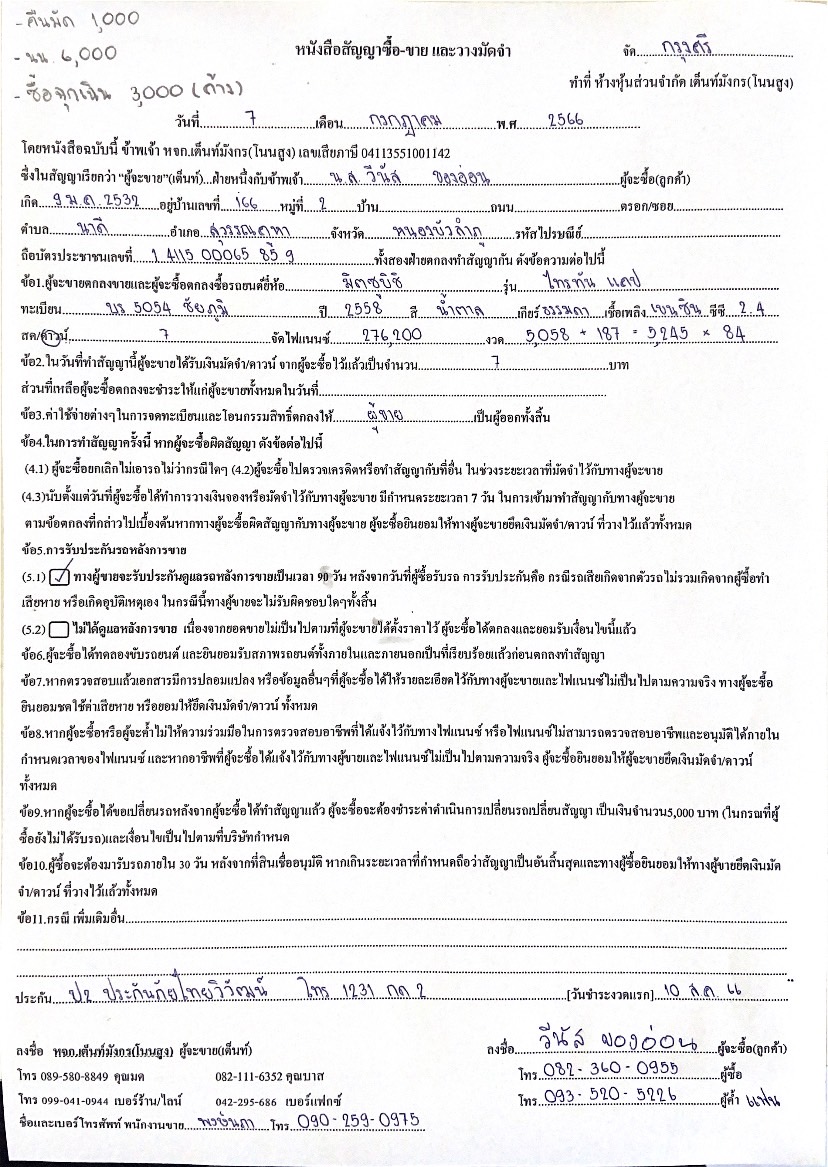 - คืนมัด 1,000
- นน. 6,000
- ซื้อฉุกเฉิน 3,000 (ค้าง)
หนังสือสัญญาซื้อ-ขาย และวางมัดจำ
จัด....กรุงศรี
ทำที่ ห้างหุ้นส่วนจำกัด เต็นท์มังกร(โนนสูง)
วันที่....7....เดือน....กรกฎาคม....พ.ศ....2566
โดยหนังสือฉบับนี้ ข้าพเจ้า หจก.เต็นท์มังกร(โนนสูง) เลขเสียภาษี 04113551001142
ซึ่งในสัญญาเรียกว่า "ผู้จะขาย"(เต็นท์)...ฝ่ายหนึ่งกับข้าพเจ้า....น.ส. วีนัส ของอ่อน....ผู้จะซื้อ(ลูกค้า)
เกิด..9 ม.ค. 2532..อยู่บ้านเลขที่..166..หมู่ที่..2..บ้าน....ถนน....ตรอก/ซอย....
ตำบล....นาดี....อำเภอ..สุวรรณคูหา..จังหวัด....หนองบัวลำภู....รหัสไปรษณีย์....
ถือบัตรประชาชนเลขที่....1 4115 00065 85 9....ทั้งสองฝ่ายตกลงทำสัญญากัน ดังข้อความต่อไปนี้
ข้อ1.ผู้จะขายตกลงขายและผู้จะซื้อตกลงซื้อรถยนต์ยี่ห้อ....มิตซูบิชิ....รุ่น....ไทรทัน แคป
ทะเบียน....บร 5054 ชัยภูมิ....ปี..2558..สี..น้ำตาล..เกียร์..ธรรมดา..เชื้อเพลิง..เบนซิน..ซีซี..2.4
สด/ดาวน์....7....จัดไฟแนนซ์....276,200....งวด....5,058 + 187 = 5,245 × 84
ข้อ2.ในวันที่ทำสัญญานี้ผู้จะขายได้รับเงินมัดจำ/ดาวน์ จากผู้จะซื้อไว้แล้วเป็นจำนวน....7....บาท
ส่วนที่เหลือผู้จะซื้อตกลงจะชำระให้แก่ผู้จะขายทั้งหมดในวันที่....
ข้อ3.ค่าใช้จ่ายต่างๆในการจดทะเบียนและโอนกรรมสิทธิ์ตกลงให้....ผู้ขาย....เป็นผู้ออกทั้งสิ้น
ข้อ4.ในการทำสัญญาครั้งนี้ หากผู้จะซื้อผิดสัญญา ดังข้อต่อไปนี้
(4.1) ผู้จะซื้อยกเลิกไม่เอารถไม่ว่ากรณีใดๆ (4.2)ผู้จะซื้อไปตรวจเครดิตหรือทำสัญญากับที่อื่น ในช่วงระยะเวลาที่มัดจำไว้กับทางผู้จะขาย
(4.3)นับตั้งแต่วันที่ผู้จะซื้อได้ทำการวางเงินจองหรือมัดจำไว้กับทางผู้จะขาย มีกำหนดระยะเวลา 7 วัน ในการเข้ามาทำสัญญากับทางผู้จะขาย
ตามข้อตกลงที่กล่าวไปเบื้องต้นหากทางผู้จะซื้อผิดสัญญากับทางผู้จะขาย ผู้จะซื้อยินยอมให้ทางผู้จะขายยึดเงินมัดจำ/ดาวน์ ที่วางไว้แล้วทั้งหมด
ข้อ5.การรับประกันรถหลังการขาย
(5.1) ☑ ทางผู้ขายจะรับประกันดูแลรถหลังการขายเป็นเวลา 90 วัน หลังจากวันที่ผู้ซื้อรับรถ การรับประกันคือ กรณีรถเสียเกิดจากตัวรถไม่รวมเกิดจากผู้ซื้อทำ
เสียหาย หรือเกิดอุบัติเหตุเอง ในกรณีนี้ทางผู้ขายจะไม่รับผิดชอบใดๆทั้งสิ้น
(5.2) ☐ ไม่ได้ดูแลหลังการขาย เนื่องจากยอดขายไม่เป็นไปตามที่ผู้จะขายได้ตั้งราคาไว้ ผู้จะซื้อได้ตกลงและยอมรับเงื่อนไขนี้แล้ว
ข้อ6.ผู้จะซื้อได้ทดลองขับรถยนต์ และยินยอมรับสภาพรถยนต์ทั้งภายในและภายนอกเป็นที่เรียบร้อยแล้วก่อนตกลงทำสัญญา
ข้อ7.หากตรวจสอบแล้วเอกสารมีการปลอมแปลง หรือข้อมูลอื่นๆที่ผู้จะซื้อได้ให้รายละเอียดไว้กับทางผู้จะขายและไฟแนนซ์ไม่เป็นไปตามความจริง ทางผู้จะซื้อ
ยินยอมชดใช้ค่าเสียหาย หรือยอมให้ยึดเงินมัดจำ/ดาวน์ ทั้งหมด
ข้อ8.หากผู้จะซื้อหรือผู้จะค้ำไม่ให้ความร่วมมือในการตรวจสอบอาชีพที่ได้แจ้งไว้กับทางไฟแนนซ์ หรือไฟแนนซ์ไม่สามารถตรวจสอบอาชีพและอนุมัติได้ภายใน
กำหนดเวลาของไฟแนนซ์ และหากอาชีพที่ผู้จะซื้อได้แจ้งไว้กับทางผู้ขายและไฟแนนซ์ไม่เป็นไปตามความจริง ผู้จะซื้อยินยอมให้ผู้จะขายยึดเงินมัดจำ/ดาวน์
ทั้งหมด
ข้อ9.หากผู้จะซื้อได้ขอเปลี่ยนรถหลังจากผู้จะซื้อได้ทำสัญญาแล้ว ผู้จะซื้อจะต้องชำระค่าดำเนินการเปลี่ยนรถเปลี่ยนสัญญา เป็นเงินจำนวน5,000 บาท (ในกรณีที่ผู้
ซื้อยังไม่ได้รับรถ)และเงื่อนไขเป็นไปตามที่บริษัทกำหนด
ข้อ10.ผู้ซื้อจะต้องมารับรถภายใน 30 วัน หลังจากที่สินเชื่ออนุมัติ หากเกินระยะเวลาที่กำหนดถือว่าสัญญาเป็นอันสิ้นสุดและทางผู้ซื้อยินยอมให้ทางผู้ขายยึดเงินมัด
จำ/ดาวน์ ที่วางไว้แล้วทั้งหมด
ข้อ11.กรณี เพิ่มเติมอื่น....
ประกัน....ป2 ประกันภัยไทยวิวัฒน์ โทร 1231 กด 2....[วันชำระงวดแรก]..10 ส.ค. 66
ลงชื่อ หจก.เต็นท์มังกร(โนนสูง) ผู้จะขาย(เต็นท์)
ลงชื่อ....วีนัส ของอ่อน....ผู้จะซื้อ(ลูกค้า)
โทร 089-580-8849 คุณมด 082-111-6352 คุณบาส
โทร....082-360-0955....ผู้ซื้อ
โทร 099-041-0944 เบอร์ร้าน/ไลน์ 042-295-686 เบอร์แฟกซ์
โทร....093-520-5226....ผู้ค้ำ แฟน
ชื่อและเบอร์โทรศัพท์ พนักงานขาย....โทร..090-259-0975